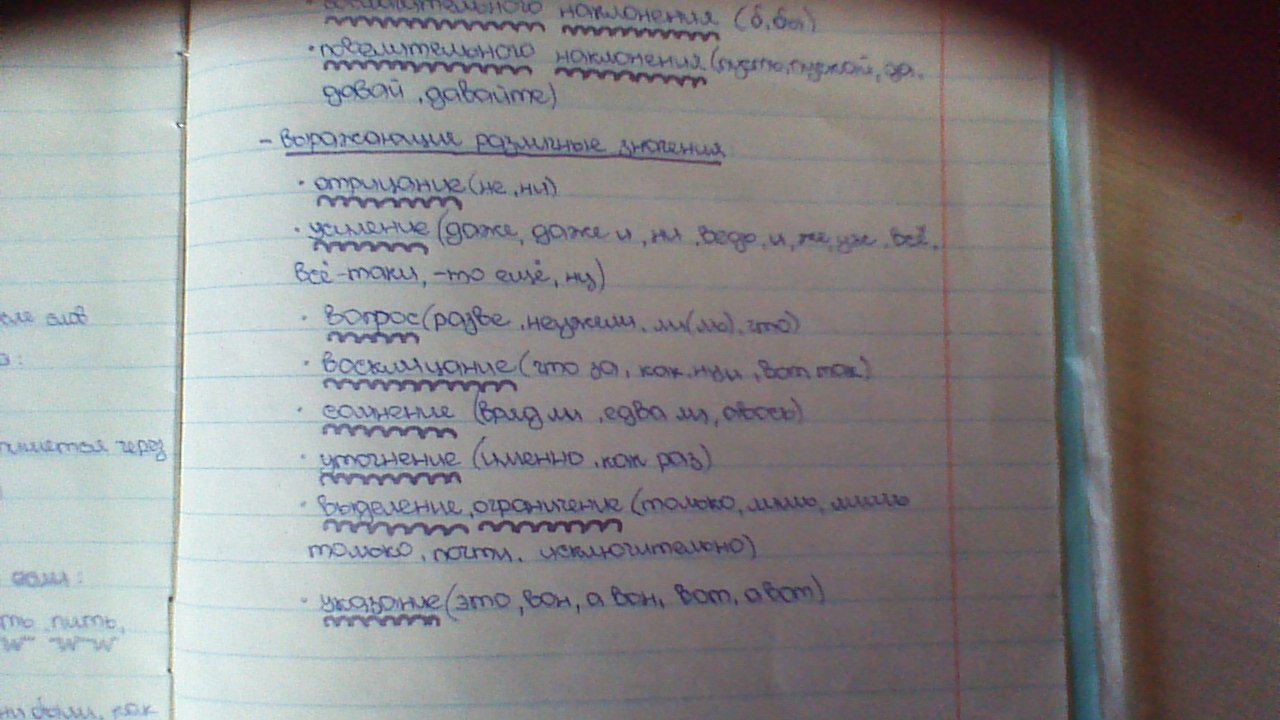 наклонения (б, бы)
· повелительного наклонения (пусть, пускай, да,
давай, давайте)
- выражающие различные значения
· отрицание (не, ни)
· усиление (даже, даже и, ни, ведь, и, же, уж, всё,
всё-таки, -то ещё, ну)
· вопрос (разве, неужели, ли(ль), что)
· восклицание (что за, как, ну и, вот так)
· сомнение (вряд ли, едва ли, авось)
· уточнение (именно, как раз)
· выделение, ограничение (только, лишь, лишь
только, почти, исключительно)
· указание (это, вон, а вон, вот, а вот)
слов
пишется через
если:
пить,
как